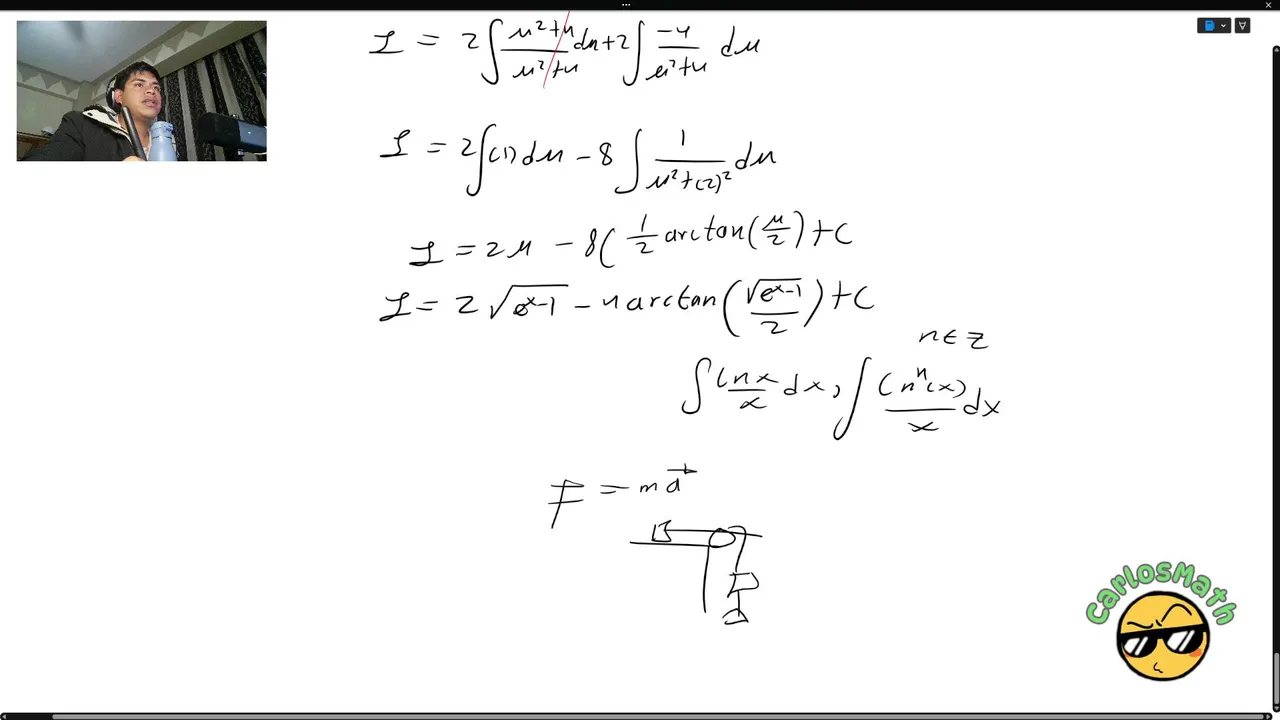 I = 2∫ u²+4/u²+4 du + 2∫ -4/u²+4 du
I = 2∫(1)du - 8∫ 1/u²+(2)² du
I = 2u - 8( 1/2 arctan(u/2) + C
I = 2√eˣ-1 - 4 arctan(√eˣ-1/2) + C
n ∈ Z
∫ lnx/x dx, ∫ lnⁿ(x)/x dx
F = ma⃗
CarlosMath